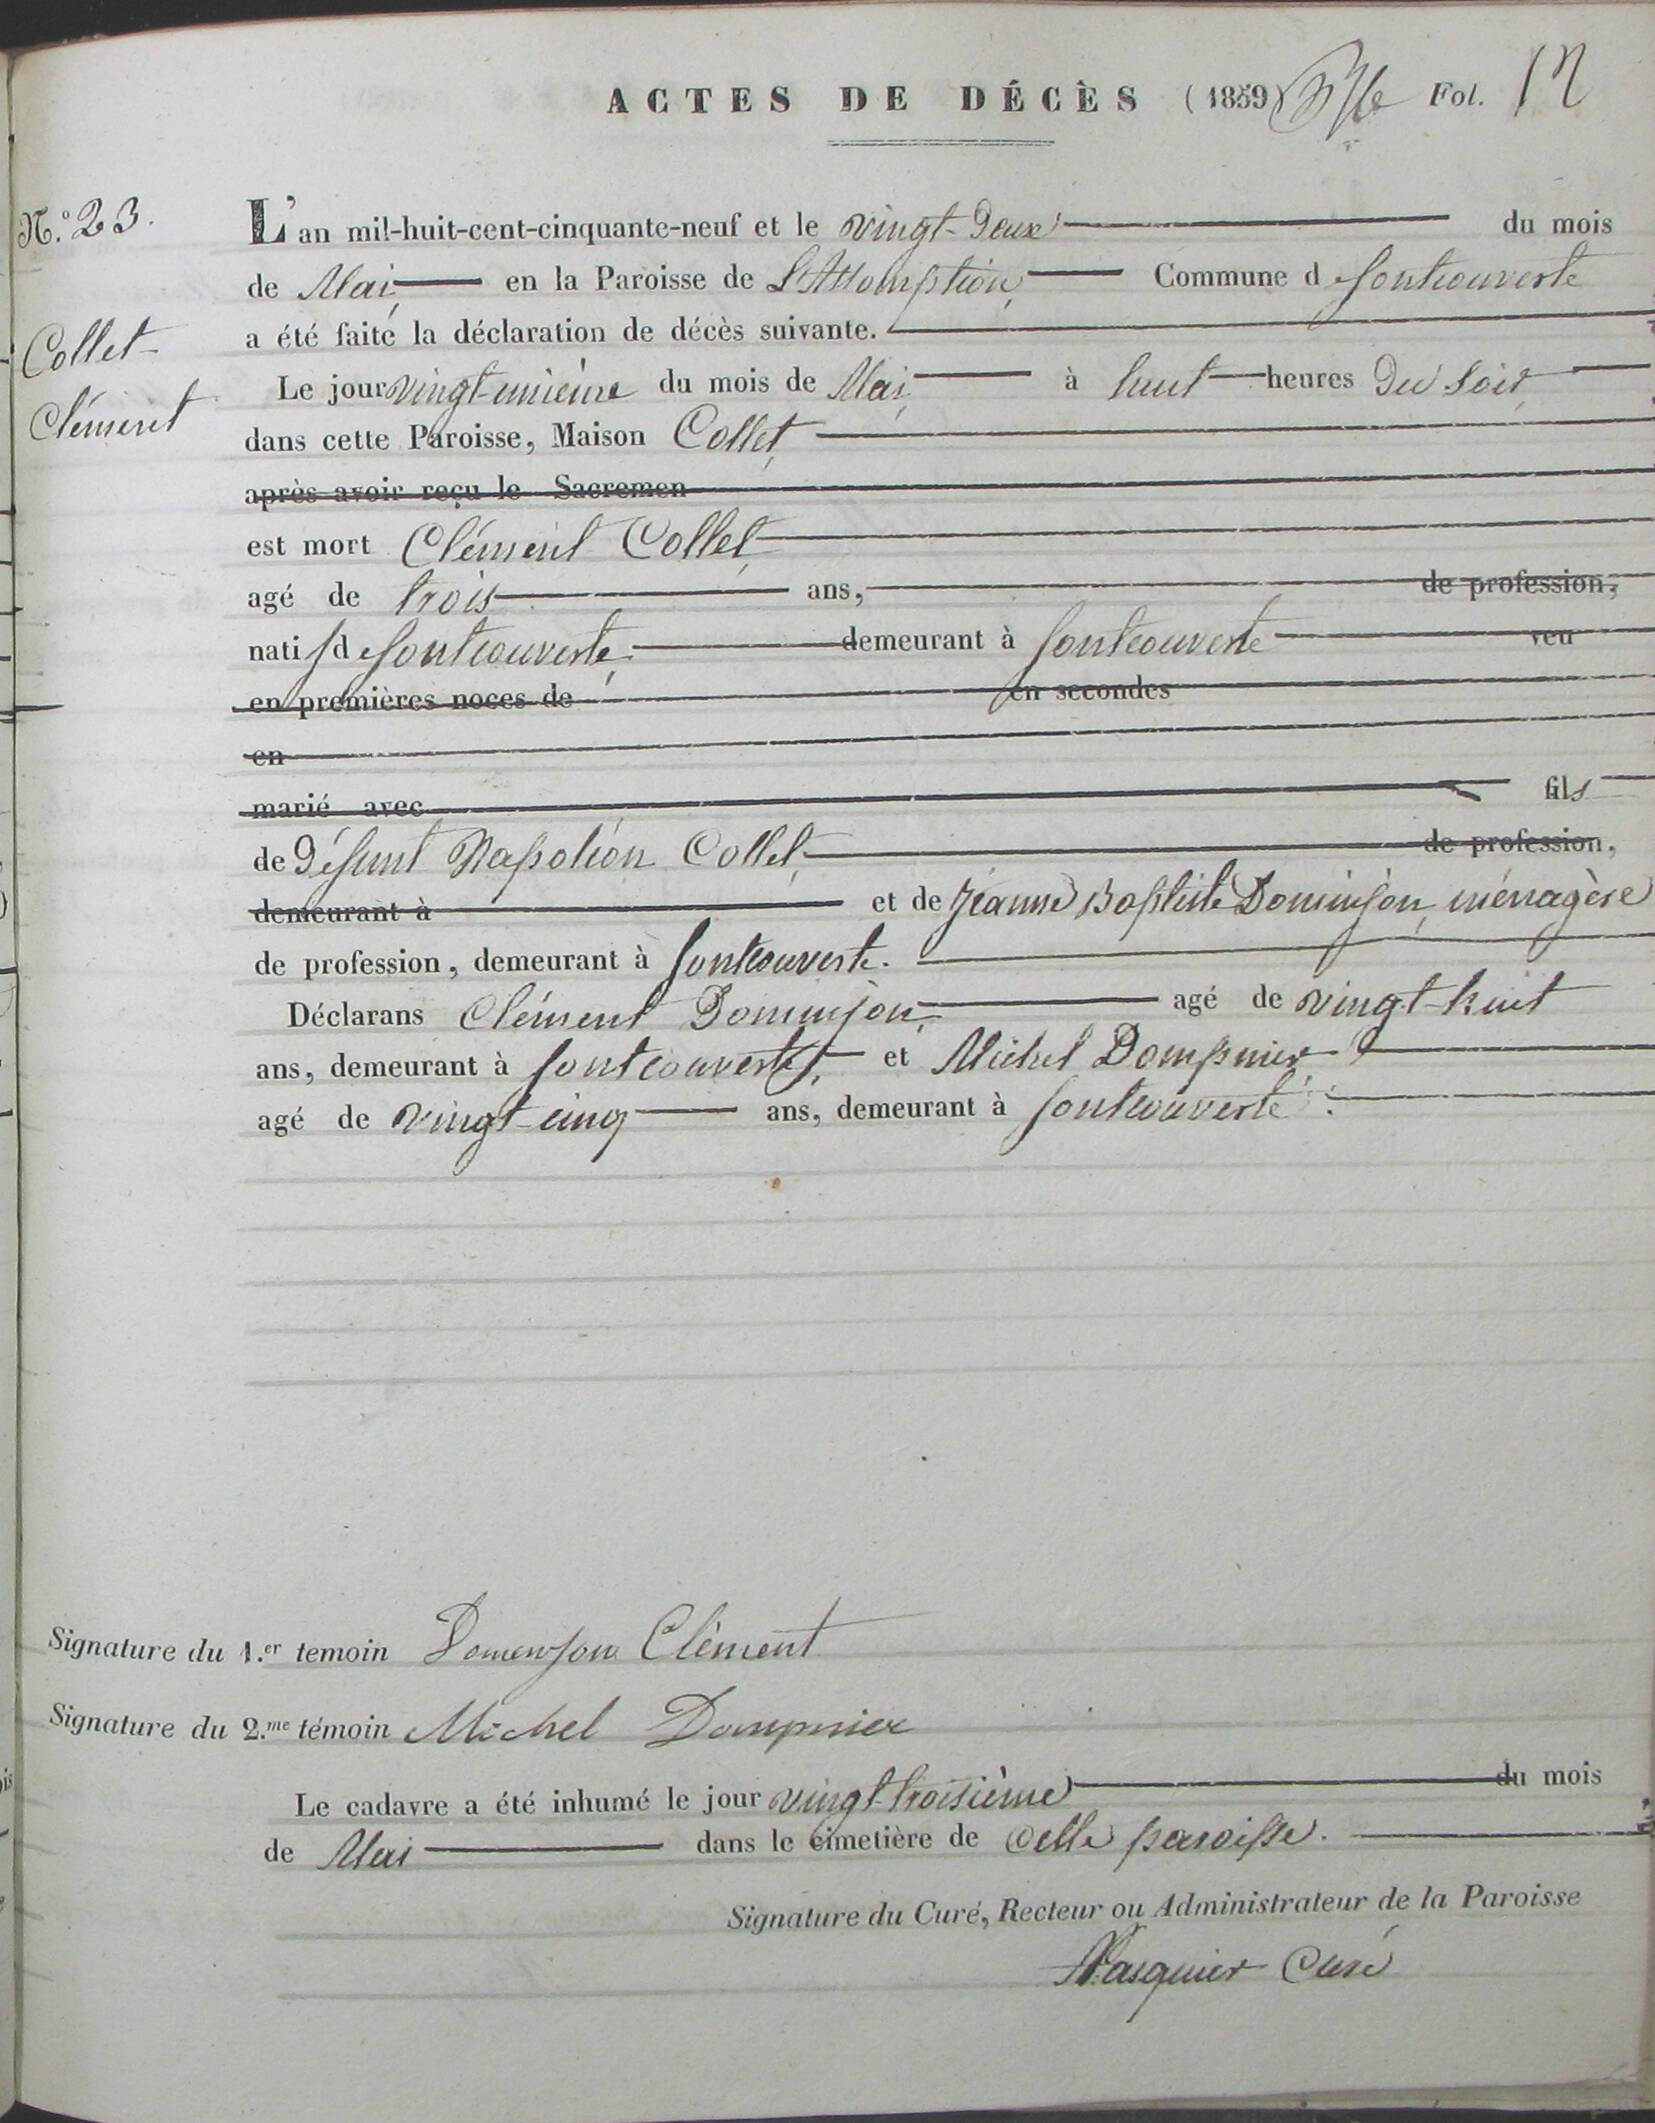 ACTES DE DÉCÈS (1859) Fol. 12
N.º 23.
L'an mil-huit-cent-cinquante-neuf et le vingt-deux du mois
de Mai, en la Paroisse de L'Assomption, Commune d fontcouverte
a été faite la déclaration de décès suivante.
Collet
Clément
Le jour vingt-unième du mois de Mai, à huit heures du soir,
dans cette Paroisse, Maison Collet,
après avoir reçu le Sacremen
est mort Clément Collet,
agé de trois ans, de profession,
natif de fontcouverte, demeurant à fontcouverte veu
en premières noces de en secondes
en
marié avec fils
de défunt Napoléon Collet, de profession,
demeurant à et de Jeanne Baptiste Dominjon, ménagère
de profession, demeurant à fontcouverte.
Déclarans Clément Dominjon, agé de vingt-huit
ans, demeurant à fontcouverte, et Michel Dompnier,
agé de vingt-cinq ans, demeurant à fontcouverte.
Signature du 1.er temoin Domenjon Clément
Signature du 2.me témoin Michel Dompnier
Le cadavre a été inhumé le jour vingt-troisième du mois
de Mai dans le cimetière de cette paroisse.
Signature du Curé, Recteur ou Administrateur de la Paroisse
Pasquier Curé